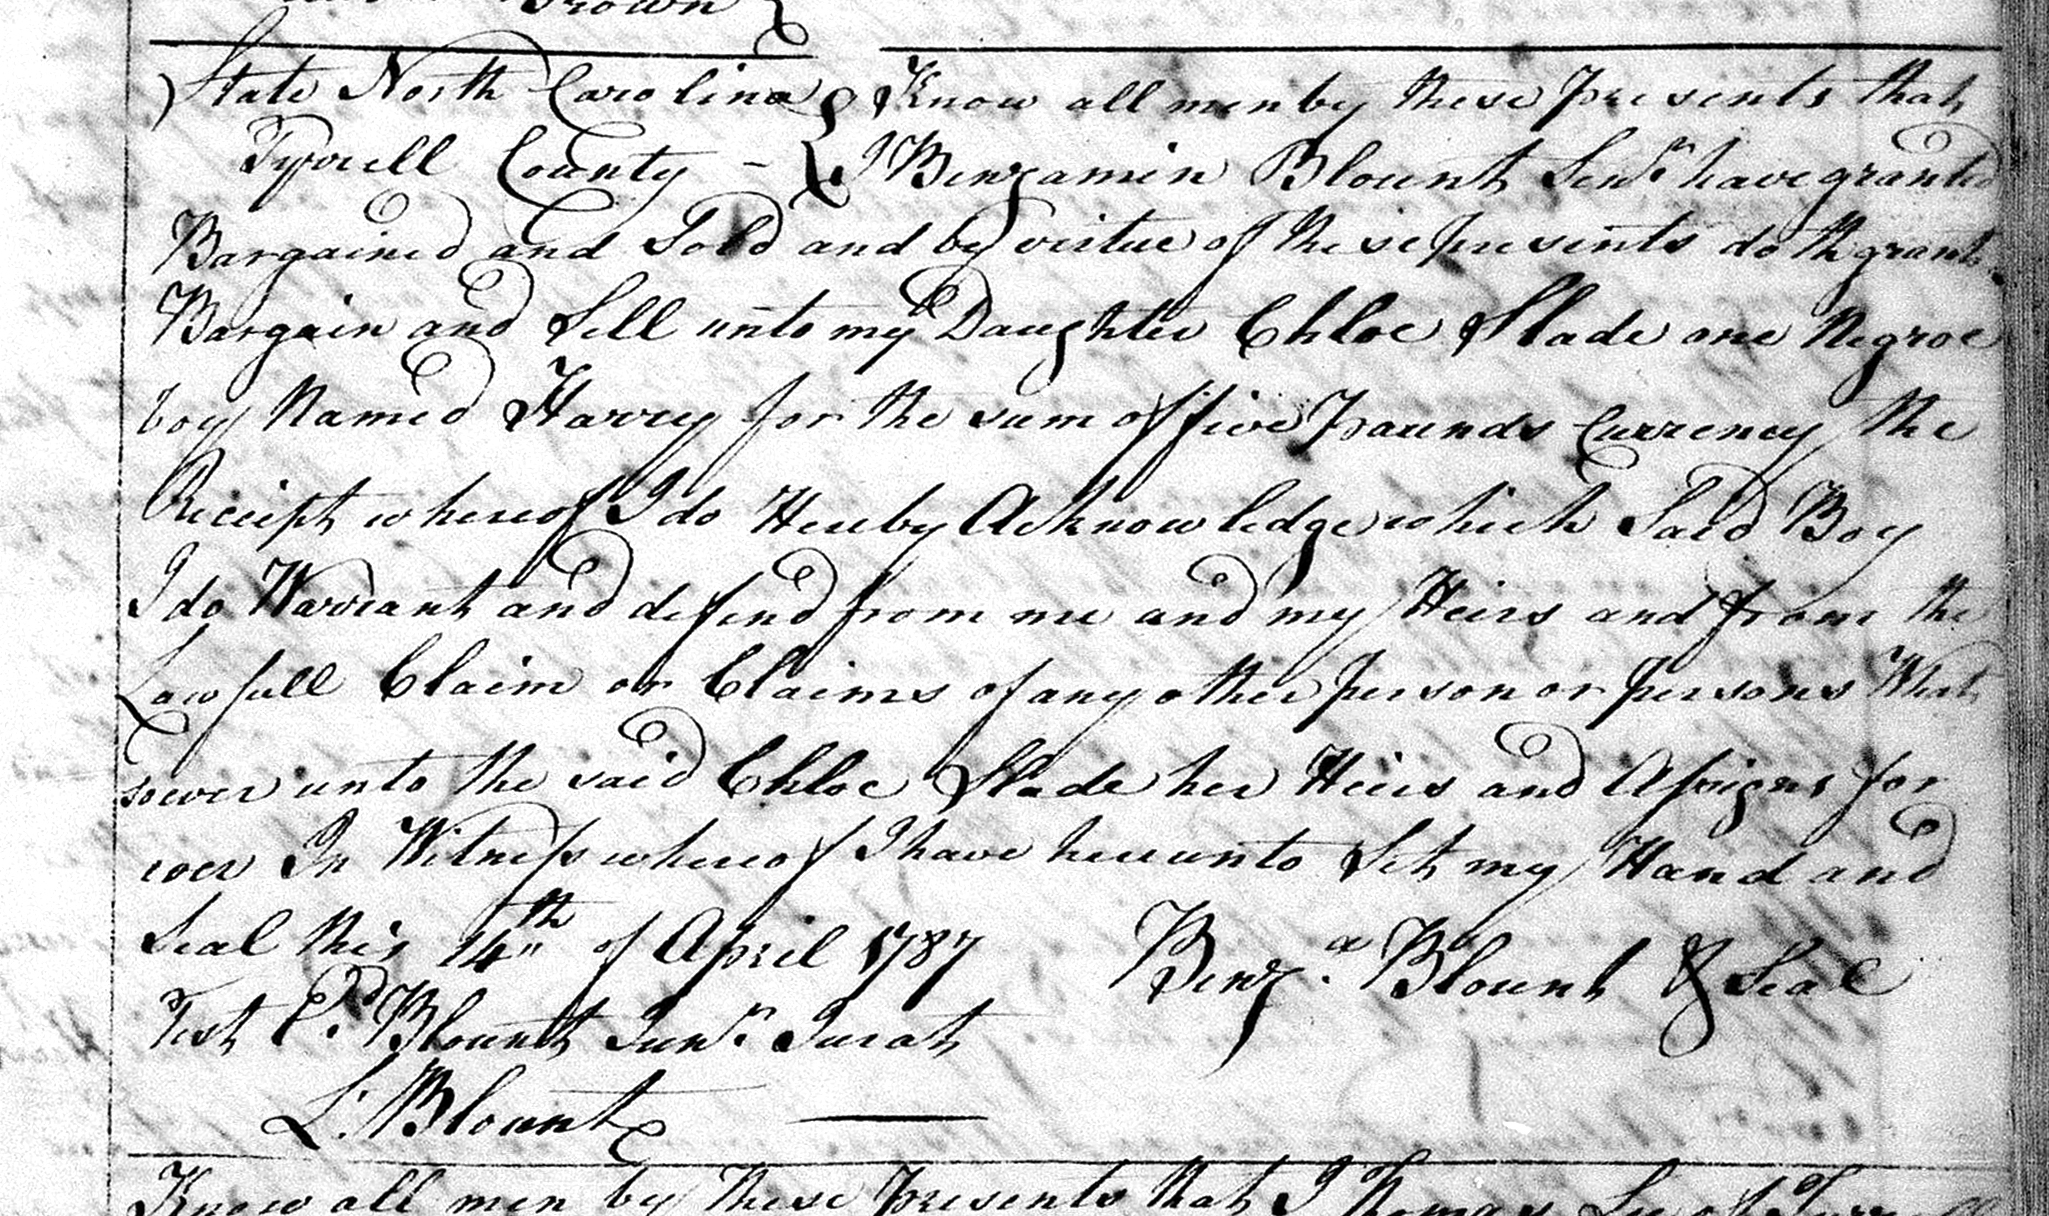 Brown
State North Carolina } Know all men by these presents that
Tyrrell County - } I Benjamin Blount Senr have granted
Bargained and Sold and by virtue of these presents doth grant
Bargain and Sell unto my Daughter Chloe Slade one Negroe
boy Named Harry for the sum of five pounds Currency the
Receipt whereof I do Hereby Acknowledge which Said Boy
I do Warrant and defend from me and my Heirs and from the
Lawfull Claim or Claims of any other person or persons What
soever unto the said Chloe Slade her Heirs and Assigns for
ever In Witness whereof I have hereunto Set my Hand and
Seal this 14th of April 1787 Benja Blount & Seal
Test Ed Blount Junr Jurat
L. Blount
Know all men by these presents that I Thomas Lee of Tyrrell